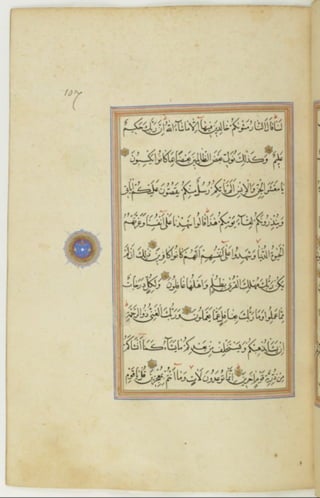 107
لَنَا قَالَ النَّارُ مَثْوٰيكُمْ خَالِدِينَ فِيهَا اِلَّا مَا شَاءَ اللّٰهُ اِنَّ رَبَّكَ حَكِيمٌ
عَلِيمٌ وَكَذٰلِكَ نُوَلِّى بَعْضَ الظَّالِمِينَ بَعْضًا بِمَا كَانُوا يَكْسِبُونَ
يَا مَعْشَرَ الْجِنِّ وَالْاِنْسِ اَلَمْ يَأْتِكُمْ رُسُلٌ مِنْكُمْ يَقُصُّونَ عَلَيْكُمْ اٰيَاتِى
وَيُنْذِرُونَكُمْ لِقَاءَ يَوْمِكُمْ هٰذَا قَالُوا شَهِدْنَا عَلٰى اَنْفُسِنَا وَغَرَّتْهُمُ
الْحَيٰوةُ الدُّنْيَا وَشَهِدُوا عَلٰى اَنْفُسِهِمْ اَنَّهُمْ كَانُوا كَافِرِينَ ذٰلِكَ اَنْ لَمْ
يَكُنْ رَبُّكَ مُهْلِكَ الْقُرٰى بِظُلْمٍ وَاَهْلُهَا غَافِلُونَ وَلِكُلٍّ دَرَجَاتٌ
مِمَّا عَمِلُوا وَمَا رَبُّكَ بِغَافِلٍ عَمَّا يَعْمَلُونَ وَرَبُّكَ الْغَنِىُّ ذُو الرَّحْمَةِ
اِنْ يَشَأْ يُذْهِبْكُمْ وَيَسْتَخْلِفْ مِنْ بَعْدِكُمْ مَا يَشَاءُ كَمَا اَنْشَاَكُمْ
مِنْ ذُرِّيَّةِ قَوْمٍ اٰخَرِينَ اِنَّ مَا تُوعَدُونَ لَاٰتٍ وَمَا اَنْتُمْ بِمُعْجِزِينَ قُلْ يَا قَوْمِ